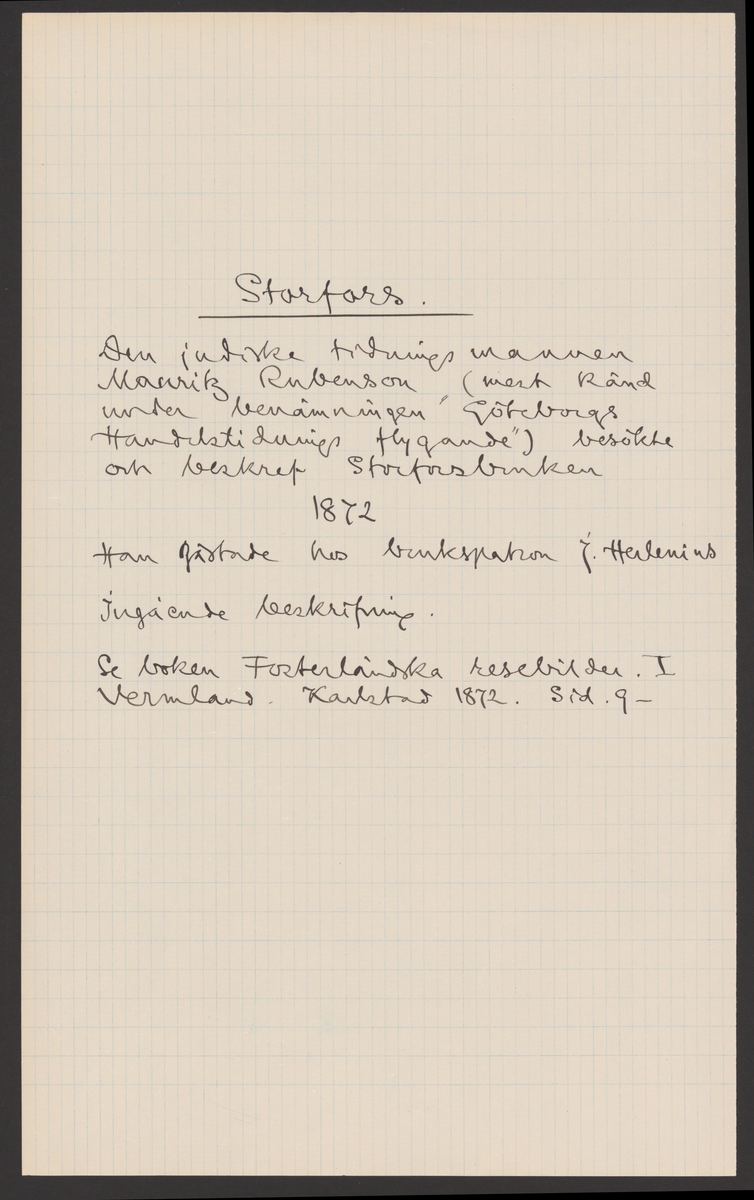 Storfors.
Den judiske tidningsmannen
Mauritz Rubenson (mest känd
under benämningen "Göteborgs
Handelstidnings flygande") besökte
och beskref Storforsbruken
1872
Han gästade hos brukspatron J. Herlenius
Ingående beskrifning.
Se boken Fosterländska resebilder. I
Vermland. Karlstad 1872. Sid. 9-